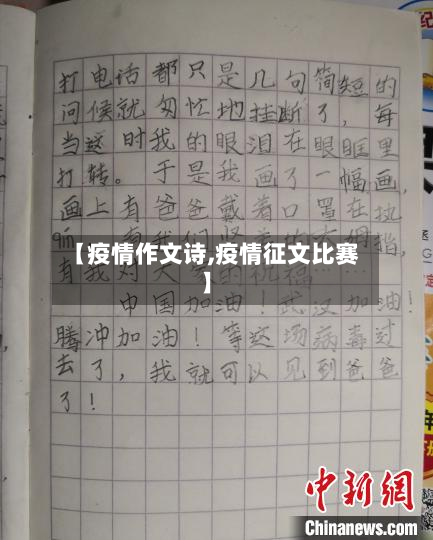 打电话都只是几句简短的
问候就匆忙地挂断了，每
当这时我的眼泪在眼眶里
打转。于是我画了一幅画，
画上有爸爸戴着口罩在执
指，
【疫情作文诗,疫情征文比赛
】
中国加油！武汉加油！
腾冲加油！等这场病毒过
去了，我就可以见到爸爸
了！
中新网
Chinanews.com